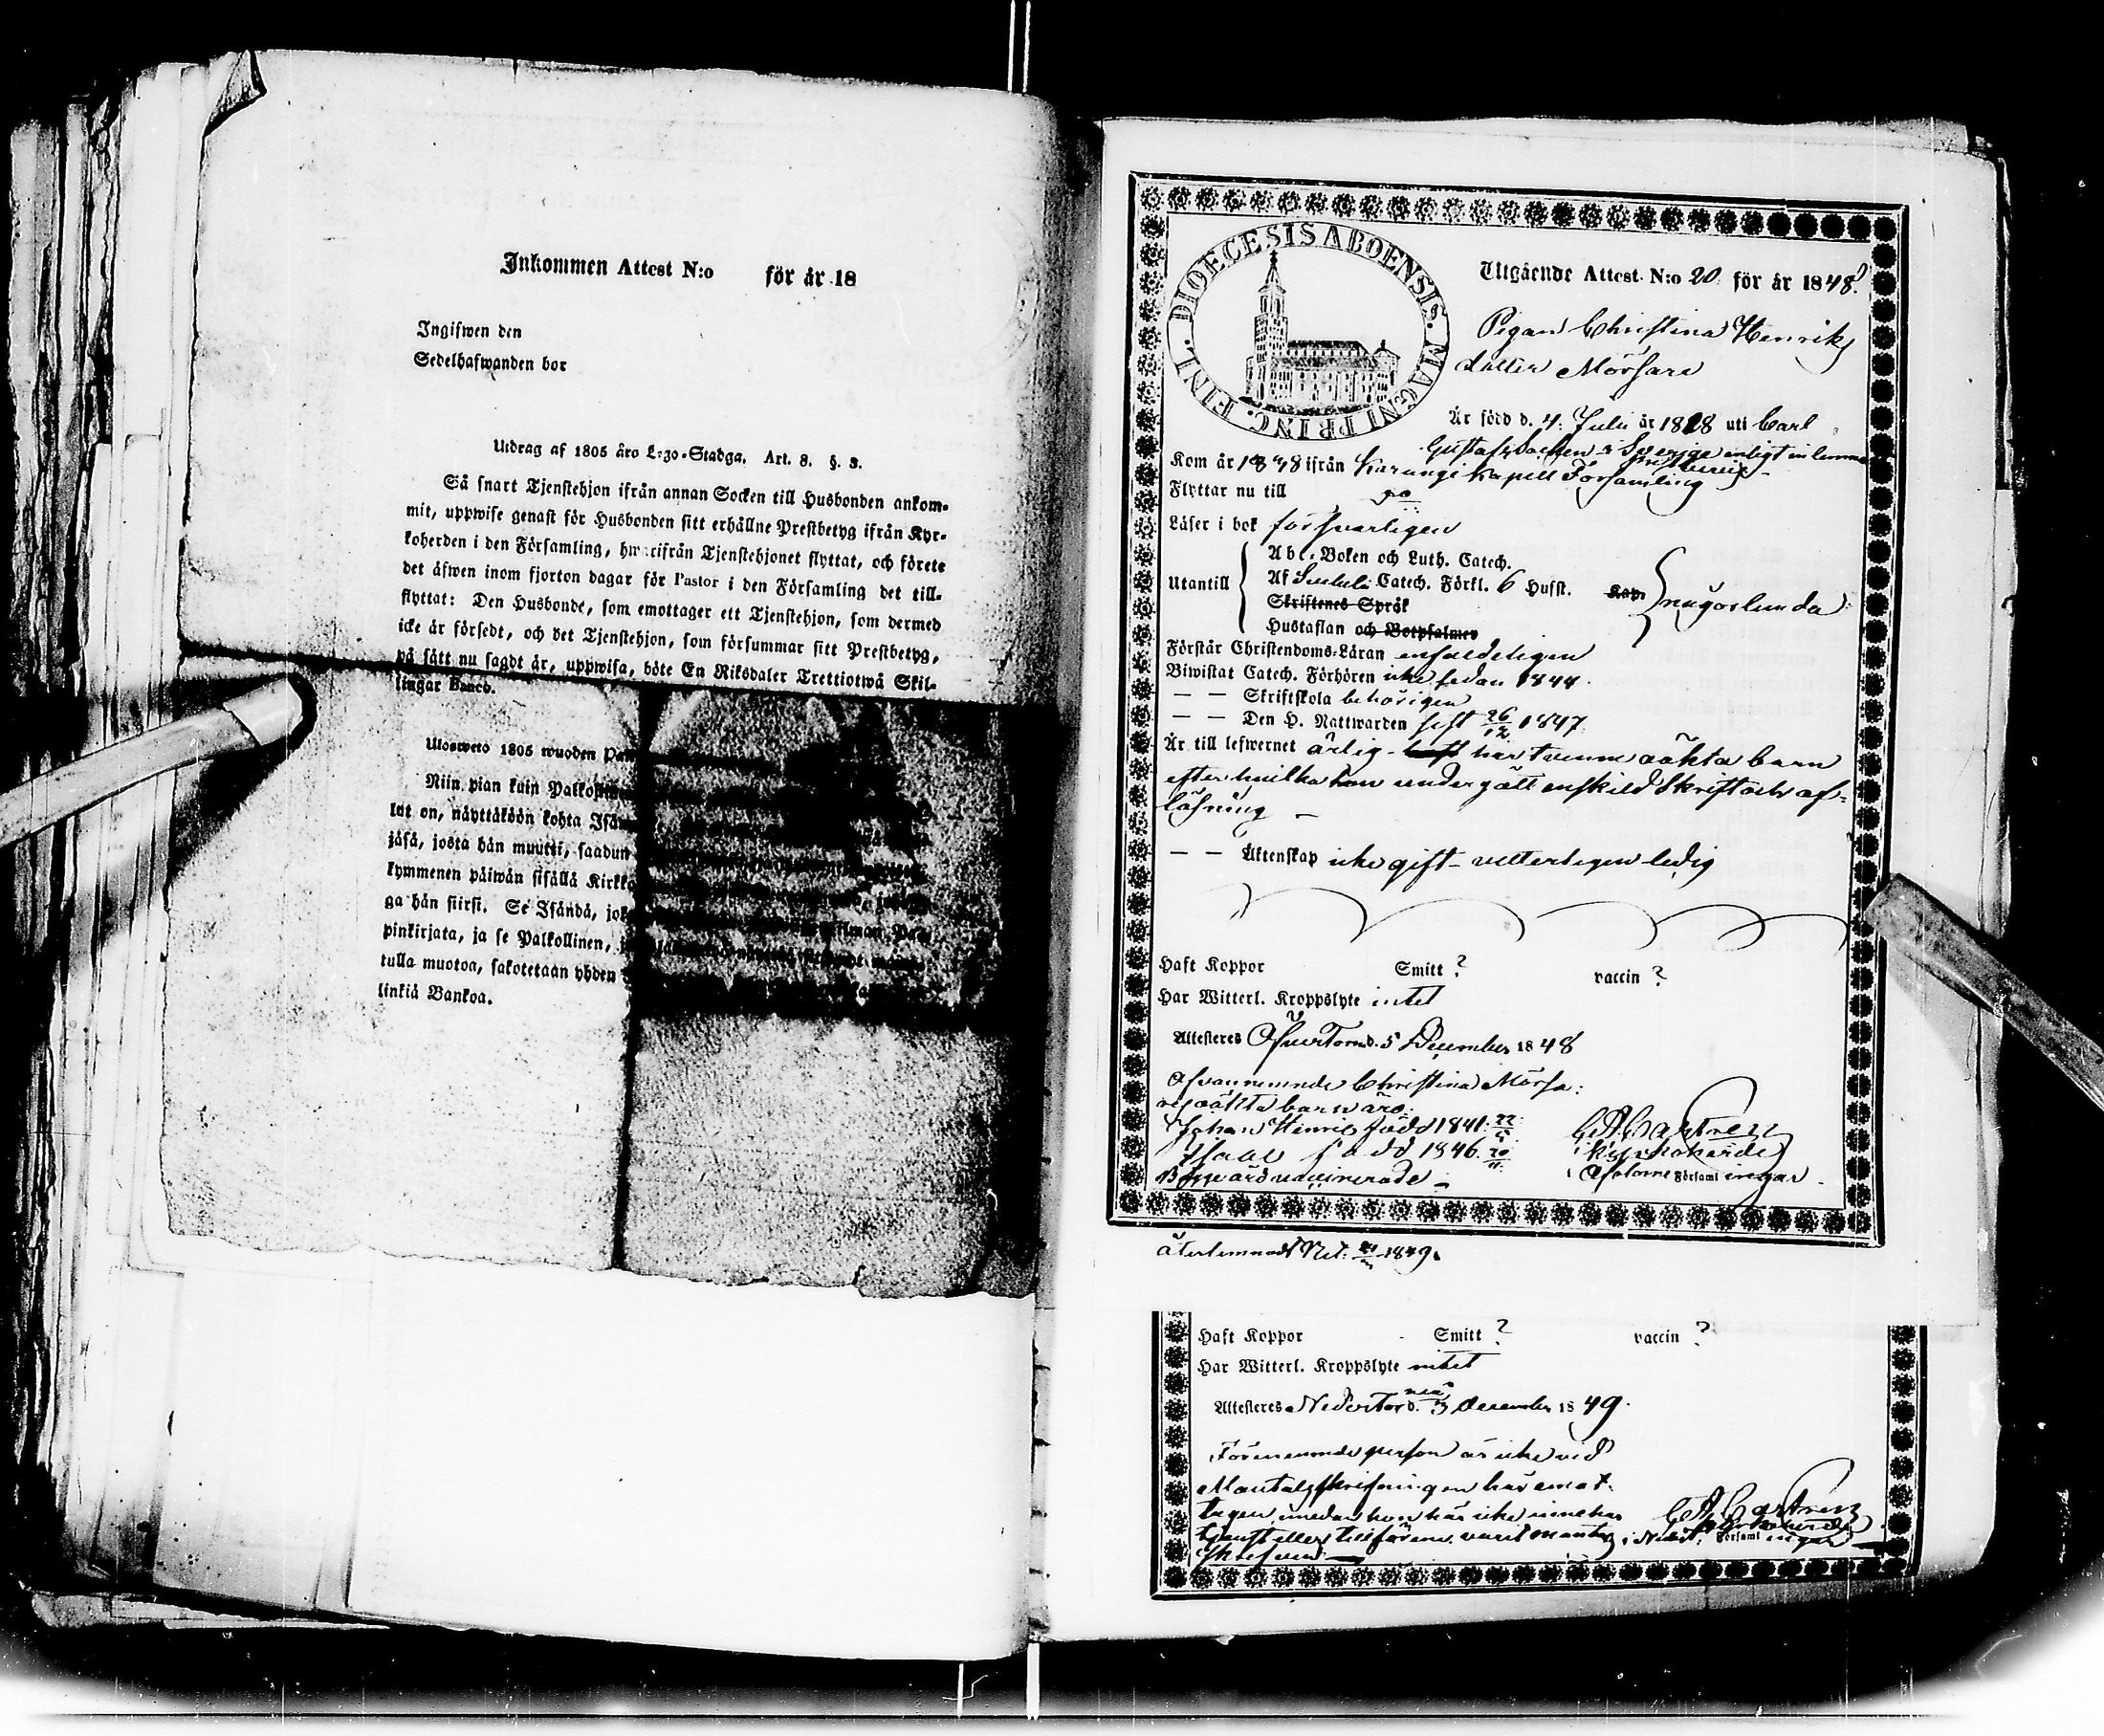 Inkommen Attest N:o för år 18
Ingifwen den
Sedelhafwanden bor
Utdrag af 1805 års Lego-Stadga. Art. 8. §. 3.
Så snart Tjenstehjon ifrån annan Socken till Husbonden ankom-
mit, uppwise genast för Husbonden sitt erhållne Prestbetyg ifrån Kyr-
koherden i den Församling, hwarifrån Tjenstehjonet flyttat, och förete
det äfwen inom fjorton dagar för Pastor i den Församling det till-
flyttat: Den Husbonde, som emottager ett Tjenstehjon, som dermed
icke är försedt, och det Tjenstehjon, som försummar sitt Prestbetyg,
på sätt nu sagdt är, uppwisa, böte En Riksdaler Trettiotwå Skil-
lingar Banco.
Ulosweto 1805 wuoden
Niin pian kuin
lut on, näyttäköön kohta
jäsä, josta hän muutti, saadun
kymmenen päiwän sisällä
ga hän siirsi. Se Isändä,
pinkirjata, ja se Palkollinen,
tulla muotoa, sakotetaan yhden
linkiä Bankoa.
DIOECESIS ABOENSIS. MAGNI PRINC. FINL.
Utgående Attest N:o 20 för år 1848.
Pigan Christina Henriks
dotter Mörsare
Är född d. 4. Juli år 1818 uti Carl
Gustafs Socken i Sverige enligt inlemnadt
Prestbevis
Kom år 1848 ifrån Karungi Kapell Församling
Flyttar nu till
Läser i bok försvarligen
Utantill
Abc-Boken och Luth. Catech.
Af Catech. Förkl. 6 Hufst. Kap.
Skriftenes Språk
Hustaflan och Botpsalmer
någorlunda
Förstår Christendoms-Läran enfaldeligen
Biwistat Catech. Förhören icke sedan 1844.
— — Skriftskola behörigen
— — Den H. Nattwarden sist 26/12 1847.
Är till lefwernet ärlig - har tvenne oäkta barn
efter hvilka hon undergått enskild skrift och af-
lösning —
— — Äktenskap icke gift - vetterligen ledig
Haft Koppor Smitt ? vaccin ?
Har Witterl. Kroppslyte intet
Attesteras ÖfverTorneå d. 5 December 1848
Ofvannemnde Christina Mörsa-
res oäkta barn äro:
Johan Henric född 1841
Isaac född 1846
Kyrkoherde
Församl ingar
återlemnadt 1849.
Haft Koppor Smitt ? vaccin ?
Har Witterl. Kroppslyte intet
Attesteras NederTorneå d. 3 December 1849.
Förenemnde person är icke vid
Mantalsskrifningen här emot-
tagen, emedan hon här icke innehar
tjenst eller tillförene varit mantals
skrifven
Församl ingar